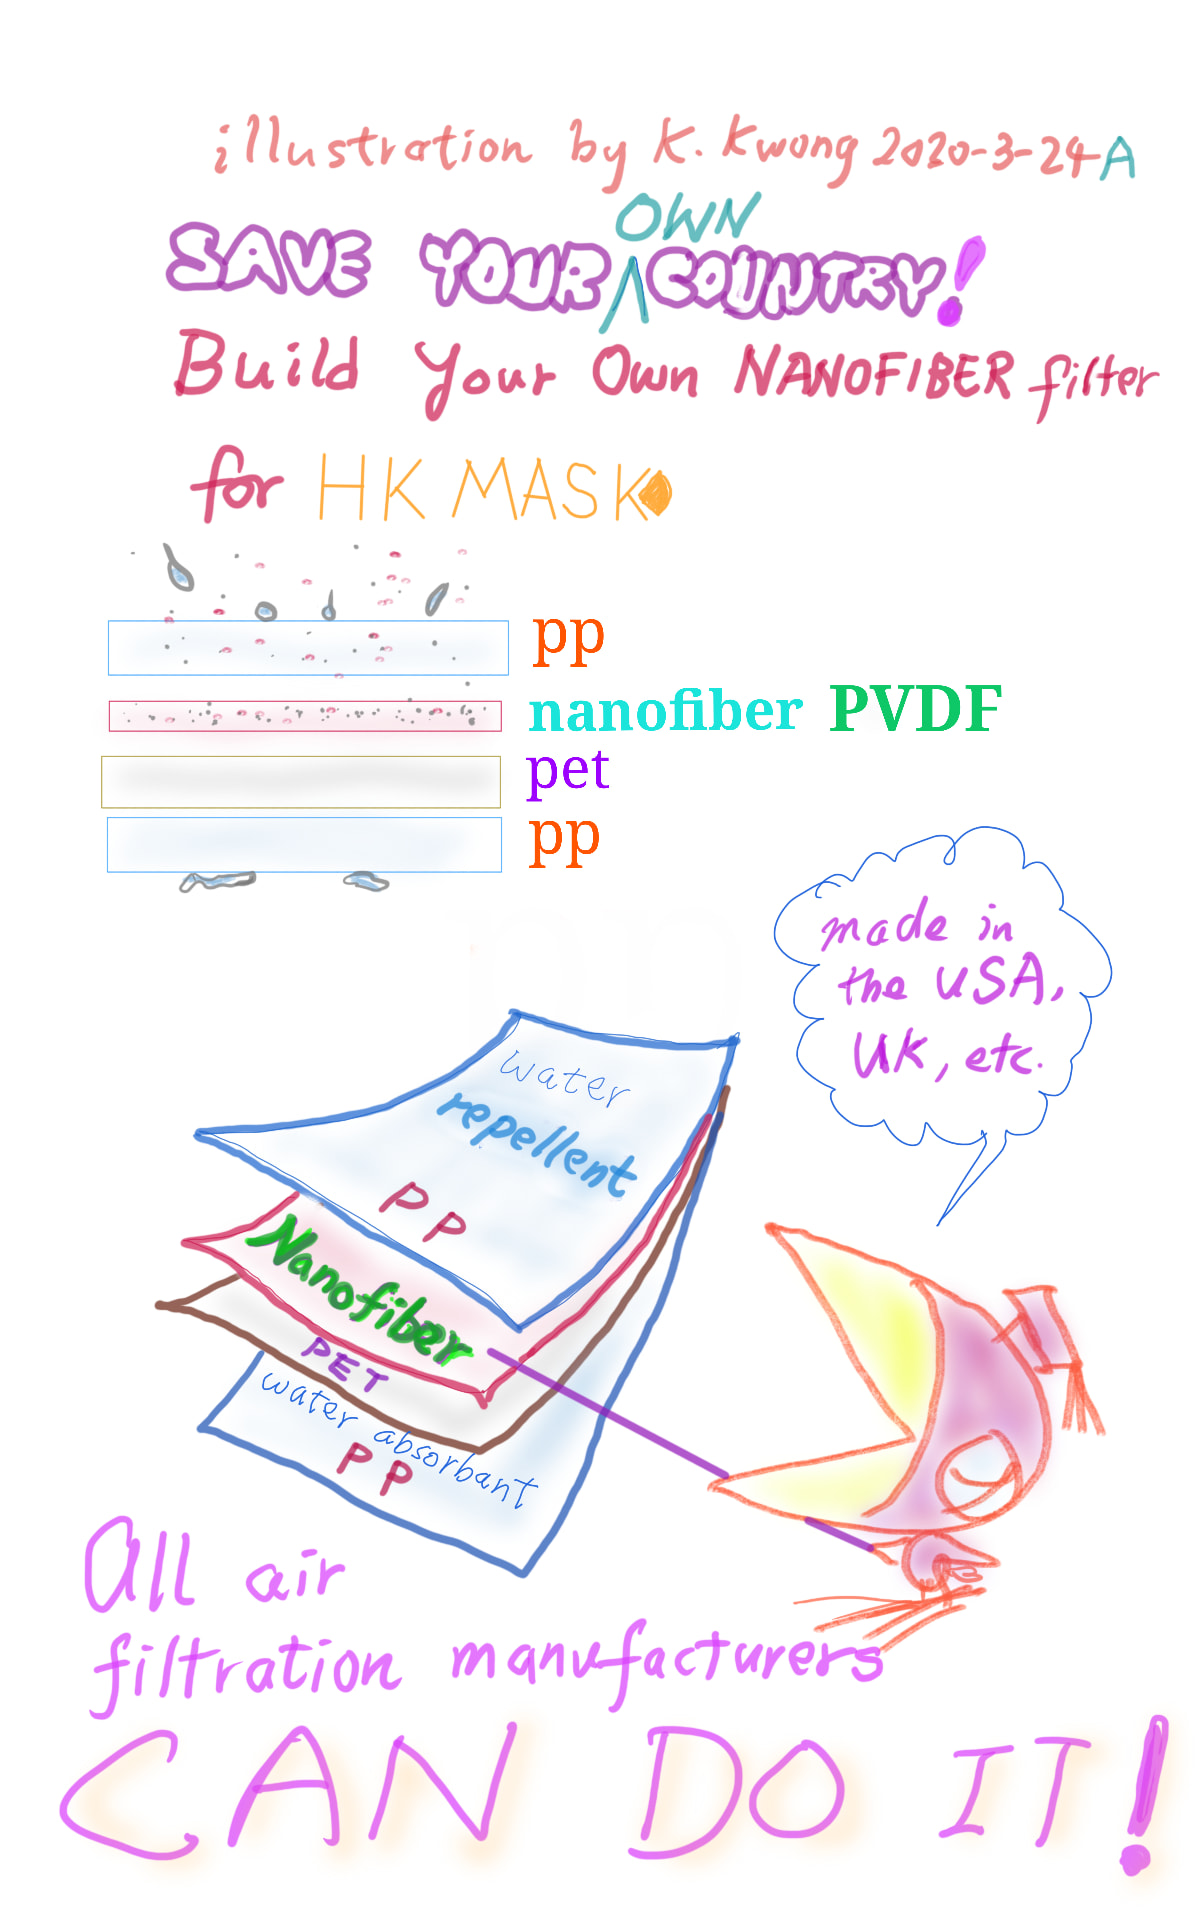 illustration by K. Kwong 2020-3-24-A
SAVE YOUR OWN COUNTRY!
Build Your Own NANOFIBER filter
for HK MASK
pp
nanofiber PVDF
pet
pp
made in
the USA,
UK, etc.
water
repellent
PP
Nanofiber
PET
water absorbant
PP
All air
filtration manufacturers
CAN DO IT!